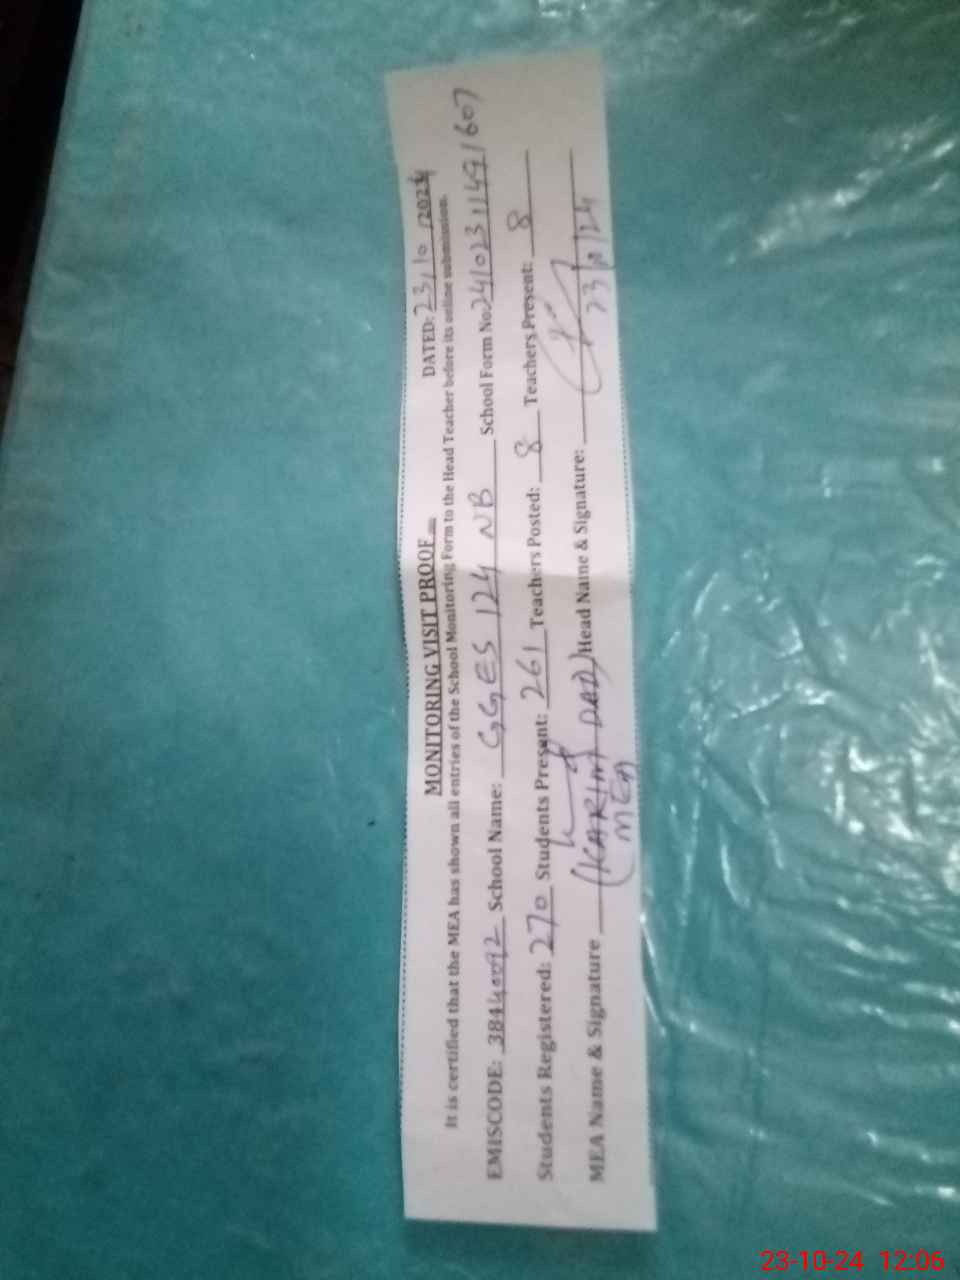 MONITORING VISIT PROOF
DATED: 23/10/2024
It is certified that the MEA has shown all entries of the School Monitoring Form to the Head Teacher before its online submission.
EMISCODE: 38440092 School Name: GGES 124 NB School Form No: 24102311491607
Students Registered: 270 Students Present: 261 Teachers Posted: 8 Teachers Present: 8
MEA Name & Signature (KARIM DAD) Head Name & Signature:
MEA
23-10-24 12:06